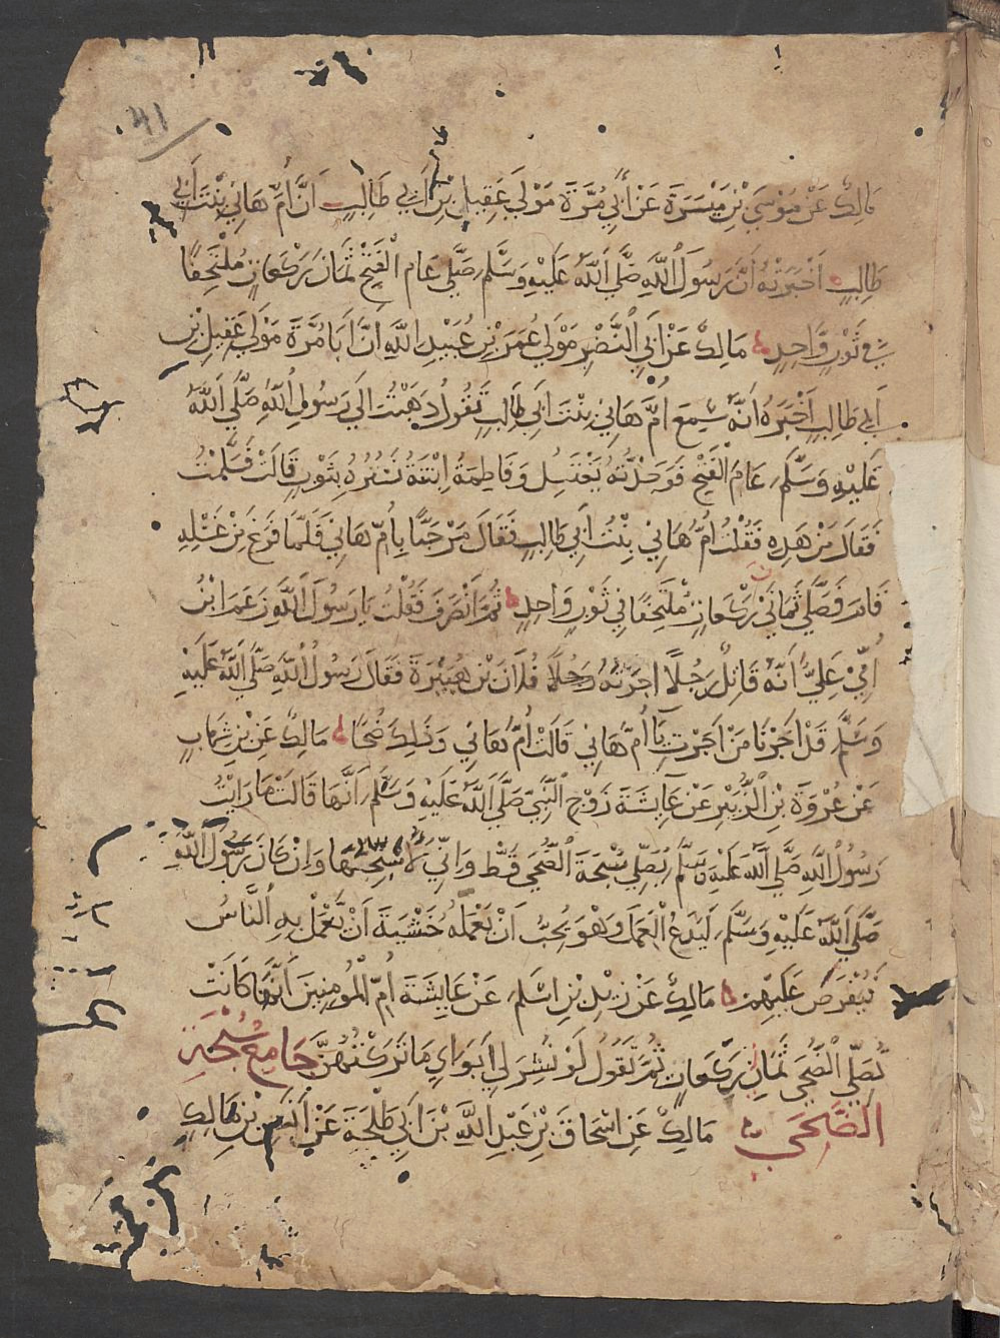 41
مَالِكٌ عَنْ مُوْسَى بْنِ مَيْسَرَةَ عَنْ أَبِي مُرَّةَ مَوْلَى عَقِيلِ بْنِ أَبِي طَالِبٍ أَنَّ أُمَّ هَانِي بِنْتَ أَبِي
طَالِبٍ أَخْبَرَتْهُ أَنَّ رَسُولَ اللَّهِ صَلَّى اللَّهُ عَلَيْهِ وَسَلَّمَ صَلَّى عَامَ الْفَتْحِ ثَمَانَ رَكَعَاتٍ مُلْتَحِفًا
فِي ثَوْبٍ وَّاحِدٍ مَالِكٌ عَنْ أَبِي النَّضْرِ مَوْلَى عُمَرَ بْنِ عُبَيْدِ اللَّهِ أَنَّ أَبَا مُرَّةَ مَوْلَى عَقِيلِ بْنِ
أَبِي طَالِبٍ أَخْبَرَهُ أَنَّهُ سَمِعَ أُمَّ هَانِي بِنْتَ أَبِي طَالِبٍ تَقُولُ ذَهَبْتُ إِلَى رَسُولِ اللَّهِ صَلَّى اللَّهُ
عَلَيْهِ وَسَلَّمَ عَامَ الْفَتْحِ فَوَجَدْتُهُ يَغْتَسِلُ وَفَاطِمَةُ ابْنَتُهُ تَسْتُرُهُ بِثَوْبٍ قَالَتْ فَسَلَّمْتُ
فَقَالَ مَنْ هَذِهِ فَقُلْتُ أُمُّ هَانِي بِنْتُ أَبِي طَالِبٍ فَقَالَ مَرْحَبًا بِأُمِّ هَانِي فَلَمَّا فَرَغَ مِنْ غُسْلِهِ
قَامَ فَصَلَّى ثَمَانِيَ رَكَعَاتٍ مُلْتَحِفًا فِي ثَوْبٍ وَاحِدٍ ثُمَّ انْصَرَفَ فَقُلْتُ يَا رَسُولَ اللَّهِ زَعَمَ ابْنُ
أُمِّي عَلِيٌّ أَنَّهُ قَاتِلٌ رَجُلًا أَجَرْتُهُ رَجُلًا فُلَانَ بْنَ هُبَيْرَةَ فَقَالَ رَسُولُ اللَّهِ صَلَّى اللَّهُ عَلَيْهِ
وَسَلَّمَ قَدْ أَجَرْنَا مَنْ أَجَرْتِ يَا أُمَّ هَانِي قَالَتْ أُمُّ هَانِي وَذَلِكَ ضُحًا مَالِكٌ عَنِ بْنِ شِهَابٍ
عَنْ عُرْوَةَ بْنِ الزُّبَيْرِ عَنْ عَايِشَةَ زَوْجِ النَّبِيِّ صَلَّى اللَّهُ عَلَيْهِ وَسَلَّمَ أَنَّهَا قَالَتْ مَا رَايْتُ
رَسُولَ اللَّهِ صَلَّى اللَّهُ عَلَيْهِ وَسَلَّمَ يُصَلِّي سُبْحَةَ الضُّحَى قَطُّ وَإِنِّي لَأُسَبِّحُهَا وَإِنْ كَانَ رَسُولُ اللَّهِ
صَلَّى اللَّهُ عَلَيْهِ وَسَلَّمَ لَيَدَعُ الْعَمَلَ وَهْوَ يُحِبُّ أَنْ يَعْمَلَهُ خَشْيَةَ أَنْ يَّعْمَلَ بِهِ النَّاسُ
فَيُفْرَضَ عَلَيْهِمْ مَالِكٌ عَنْ زَيْدِ بْنِ أَسْلَمَ عَنْ عَايِشَةَ أُمِّ الْمُومِنِينَ أَنَّهَا كَانَتْ
تُصَلِّي الضُّحَى ثَمَانِيَ رَكَعَاتٍ ثُمَّ تَقُولُ لَوْ نُشِرَ لِي أَبَوَايَ مَا تَرَكْتُهُنَّ جَامِعُ سُبْحَةِ
الضُّحَى مَالِكٌ عَنْ إِسْحَاقَ بْنِ عَبْدِ اللَّهِ بْنِ أَبِي طَلْحَةَ عَنْ أَنَسِ بْنِ مَالِكٍ